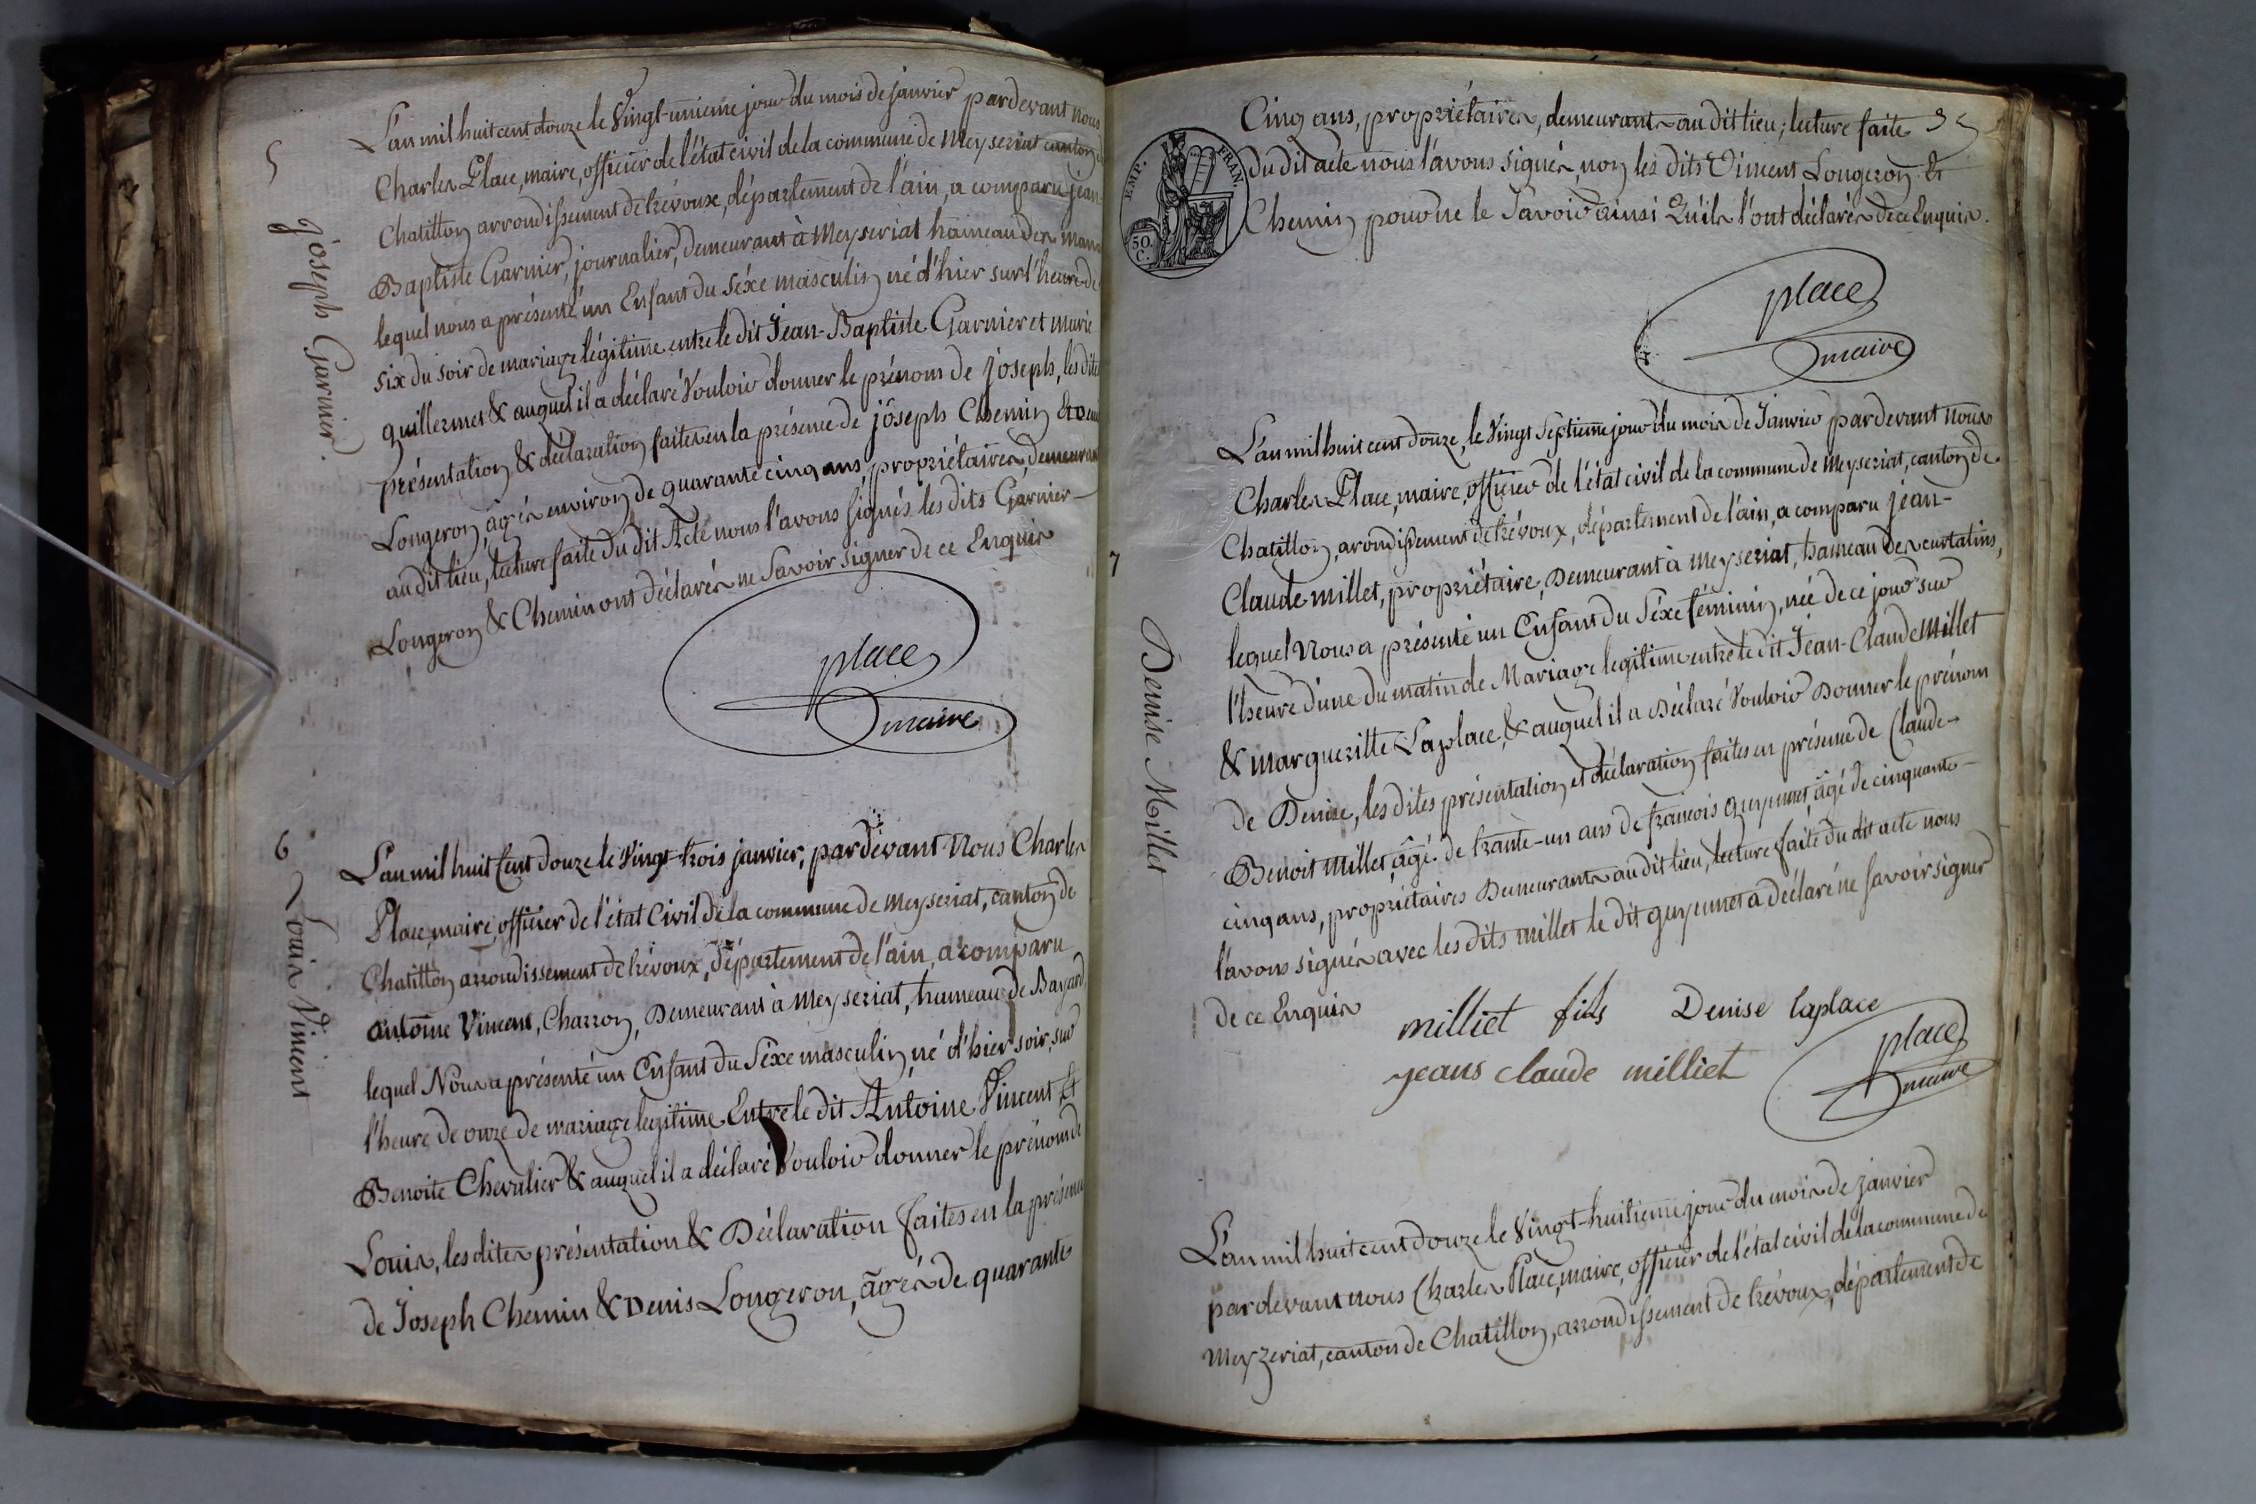 5
Joseph Garnier.
L'an mil huit cent douze le Vingt-unieme jour du mois de janvier pardevant nous
Charles Place, maire, officier de l'état civil de la commune de Meyseriat canton de
Chatillon arrondissement de trévoux, département de l'ain, a comparu jean
Baptiste Garnier, journalier, demeurant à Meyseriat hameau des
lequel nous a présenté un Enfant du séxe masculin né d'hier sur l'heure de
six du soir de mariage légitime entre le dit Jean-Baptiste Garnier et marie
quillermet & auquel il a déclaré Vouloir donner le prénom de joseph, les dites
présentation & déclaration faites en la présence de joseph Chemin & Denis
Longeron, âgés environ de quarante cinq ans, propriétaires demeurant
au dit lieu, lecture faite du dit Acte nous l'avons signés les dits Garnier
Longeron & Chemin ont déclarés ne Savoir signer de ce Enquis
place
maire
6
Louis Vincent
L'an mil huit Cent douze le Vingt-trois janvier, pardevant Nous Charles
Place, maire, officier de l'état Civil de la commune de meyseriat, canton de
Chatillon arrondissement de trévoux, département de l'ain, a comparu
antoine Vincent, Charron, Demeurant à Meyseriat, hameau de Bayard
lequel Nous a présenté un Enfant du Séxe masculin, né d'hier soir, sur
l'heure de onze de mariage legitime Entre le dit Antoine Vincent Et
Benoite Chevalier & auquel il a déclaré Vouloir donner le prénom de
Louis, les dites présentation & Déclaration faites en la présence
de Joseph Chemin & Denis Longeron, âgés de quarante
35
EMP. FRAN.
50.
C.
Cinq ans, propriétaires, demeurants au dit lieu; lecture faite
du dit acte nous l'avons signés, non les dits Vincent Longeron Et
Chemin pour ne le Savoir ainsi Qu'ils l'ont déclarés de ce Enquis.
place
maire
7
Denise Millet
L'an mil huit cent douze, le Vingt Septieme jour du mois de Janvier pardevant nous
Charles Place, maire, officier de l'état civil de la commune de Meyseriat, canton de
Chatillon, arondissement de trévoux, département de l'ain, a comparu jean-
Claude millet, propriétaire, Demeurant à meyseriat, hameau des curtatins,
lequel Nous a présenté un Enfant du Séxe féminin, née de ce jour sur
l'heure d'une du matin de Mariage legitime entre le dit Jean-Claude Millet
& Margueritte Laplace, & auquel il a Déclaré Vouloir Donner le prénom
de Denise, les dites présentation et déclaration faites en présence de Claude-
Benoit Millet, âgé de trante-un ans de francois guyennet, âgé de cinquante-
cinq ans, propriétaires Demeurants au dit lieu, lecture faite du dit acte nous
l'avons signés avec les dits millet le dit guyennet a déclaré ne savoir signer
de ce Enquis
milliet fils Denise laplace
jeans claude milliet
place
maire
L'an mil huit cent douze le Vingt-huitieme jour du mois de janvier
pardevant nous Charles Place, maire, officier de l'état civil de la commune de
Meyzeriat, canton de Chatillon, arrondissement de trévoux, département de